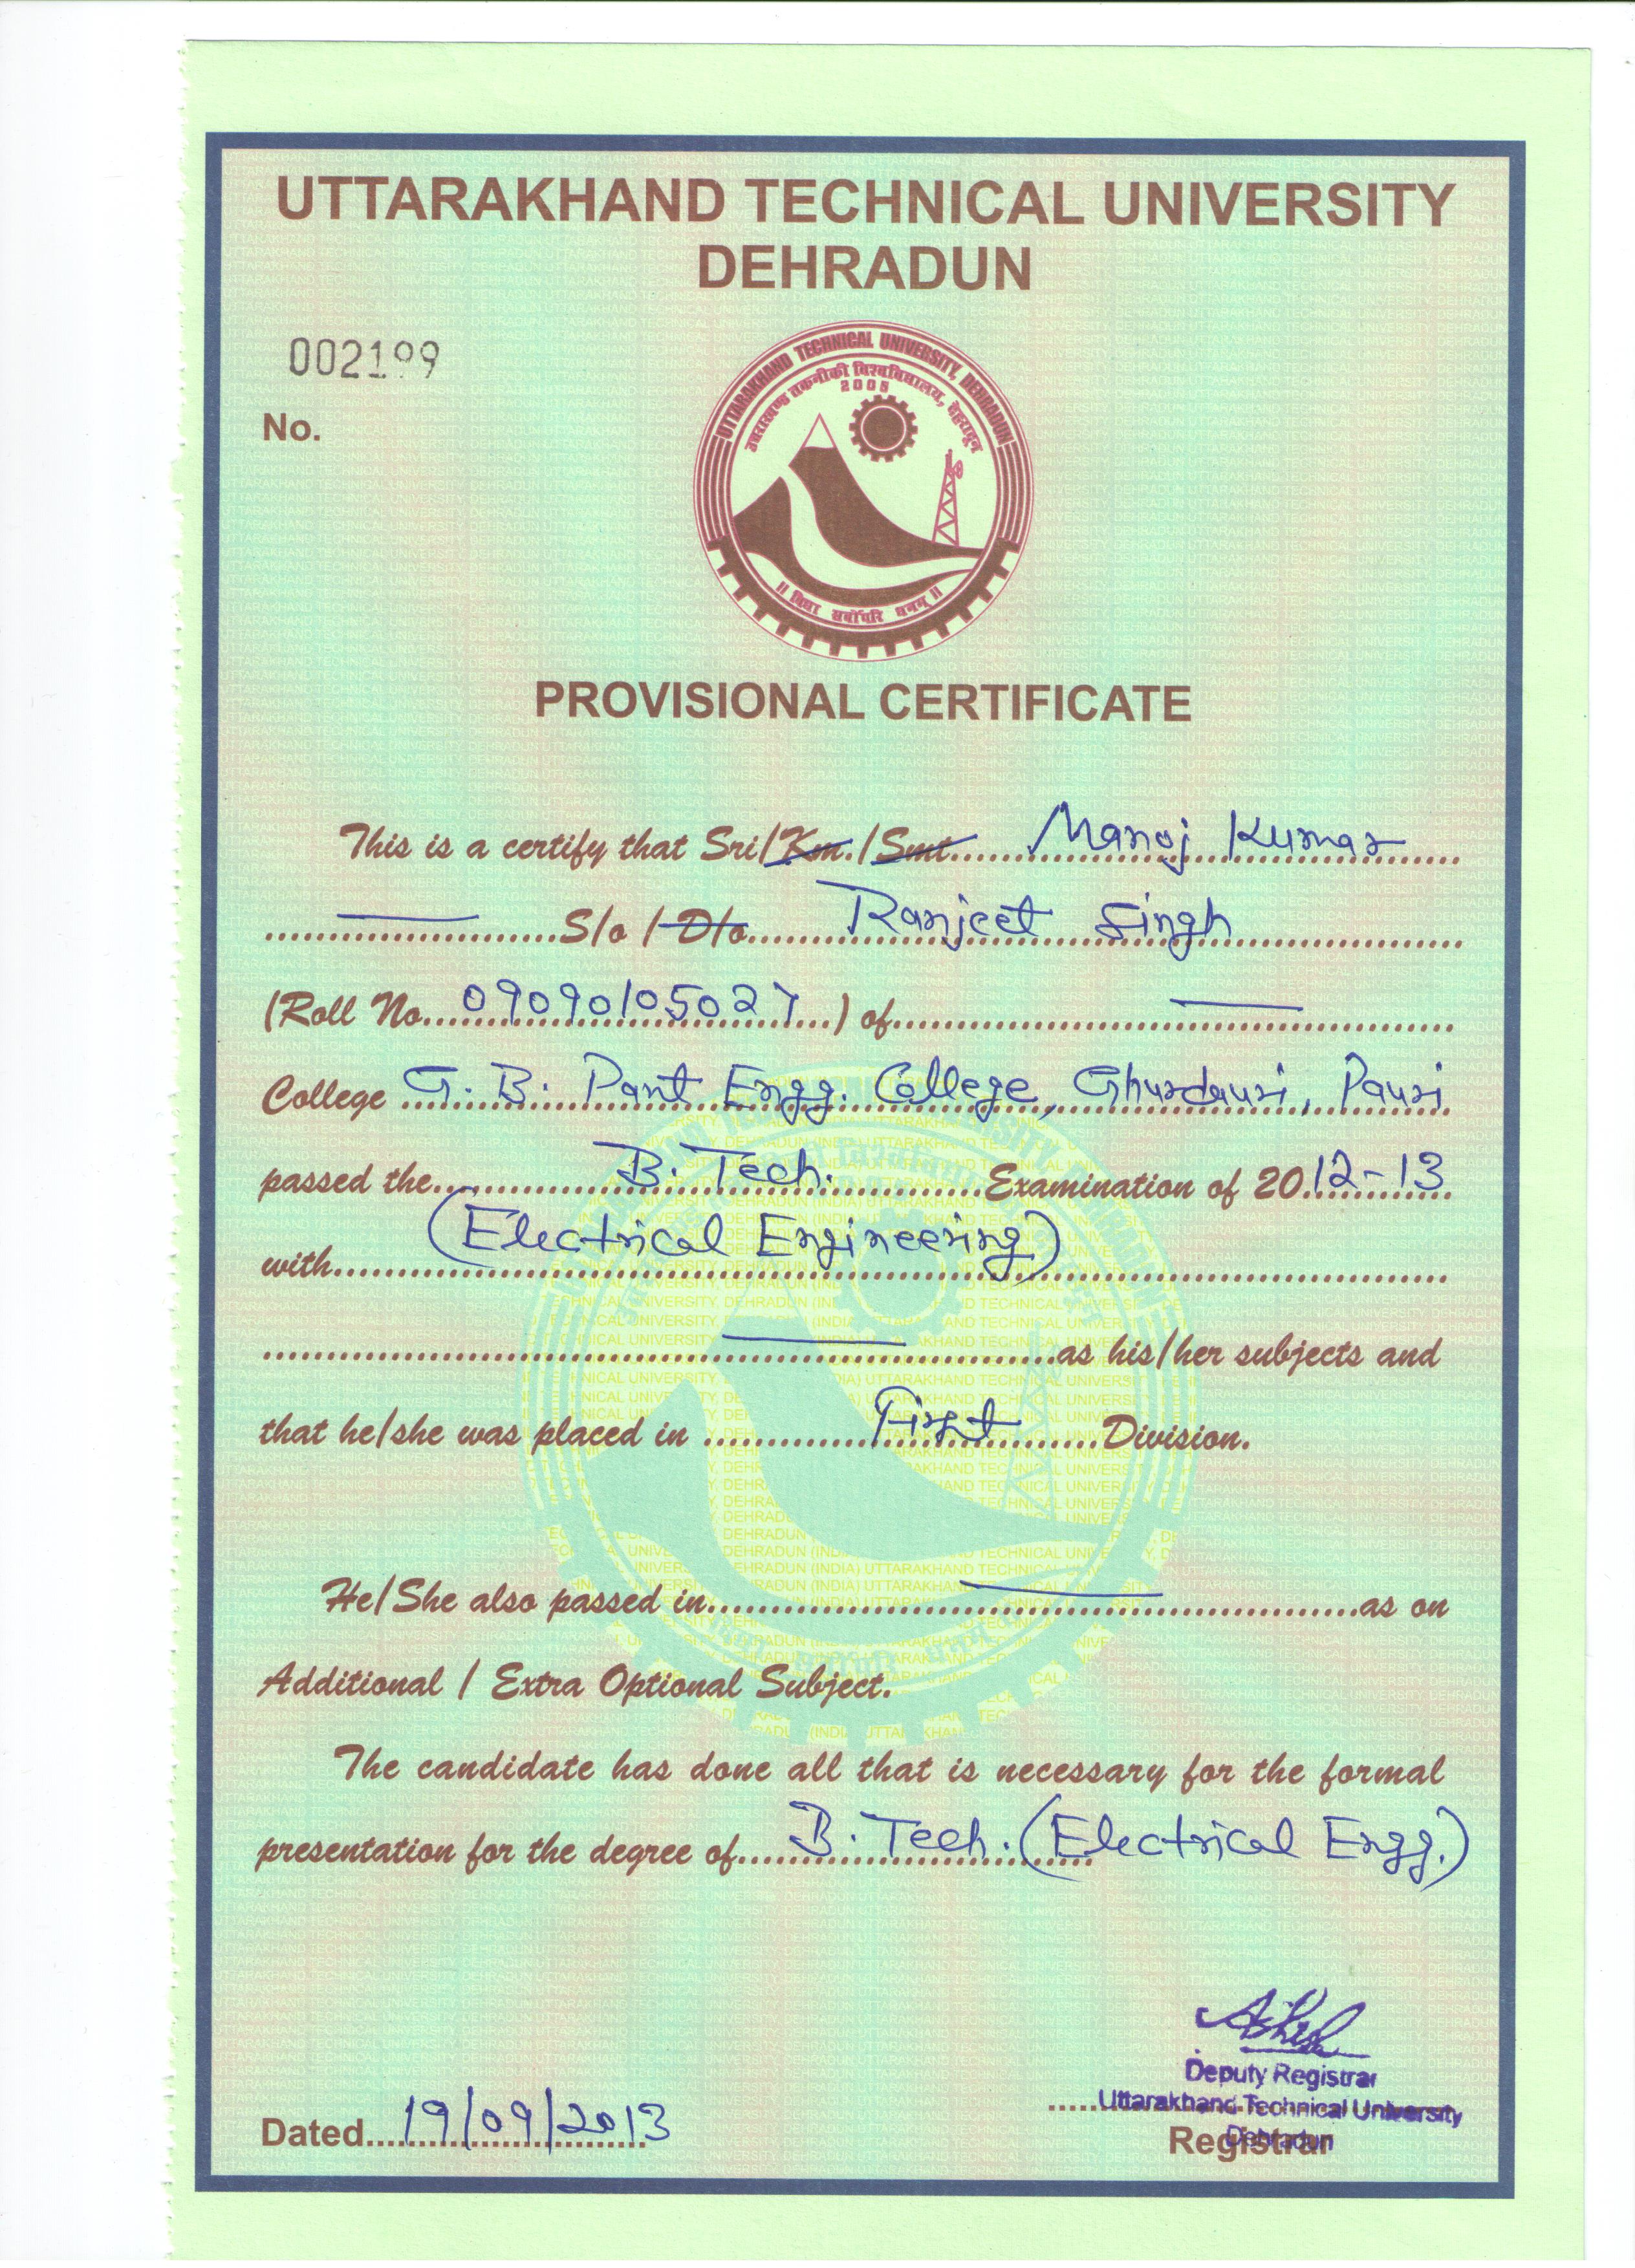 UTTARAKHAND TECHNICAL UNIVERSITY
DEHRADUN
002199
No.
UTTARAKHAND TECHNICAL UNIVERSITY, DEHRADUN
उत्तराखण्ड तकनीकी विश्वविद्यालय, देहरादून
2005
॥ विद्या सर्वोपरि धनम् ॥
PROVISIONAL CERTIFICATE
This is a certify that Sri/Km./Smt. Manoj Kumar
S/o /D/o Ranjeet Singh
(Roll No. 09090105027) of
College G. B. Pant Engg. College, Ghurdauri, Pauri
passed the B. Tech. Examination of 2012-13
with (Electrical Engineering)
as his/her subjects and
that he/she was placed in First Division.
He/She also passed in as on
Additional / Extra Optional Subject.
The candidate has done all that is necessary for the formal
presentation for the degree of B. Tech. (Electrical Engg.)
Deputy Registrar
Uttarakhand Technical University
Dehradun
Dated 19/09/2013
Registrar